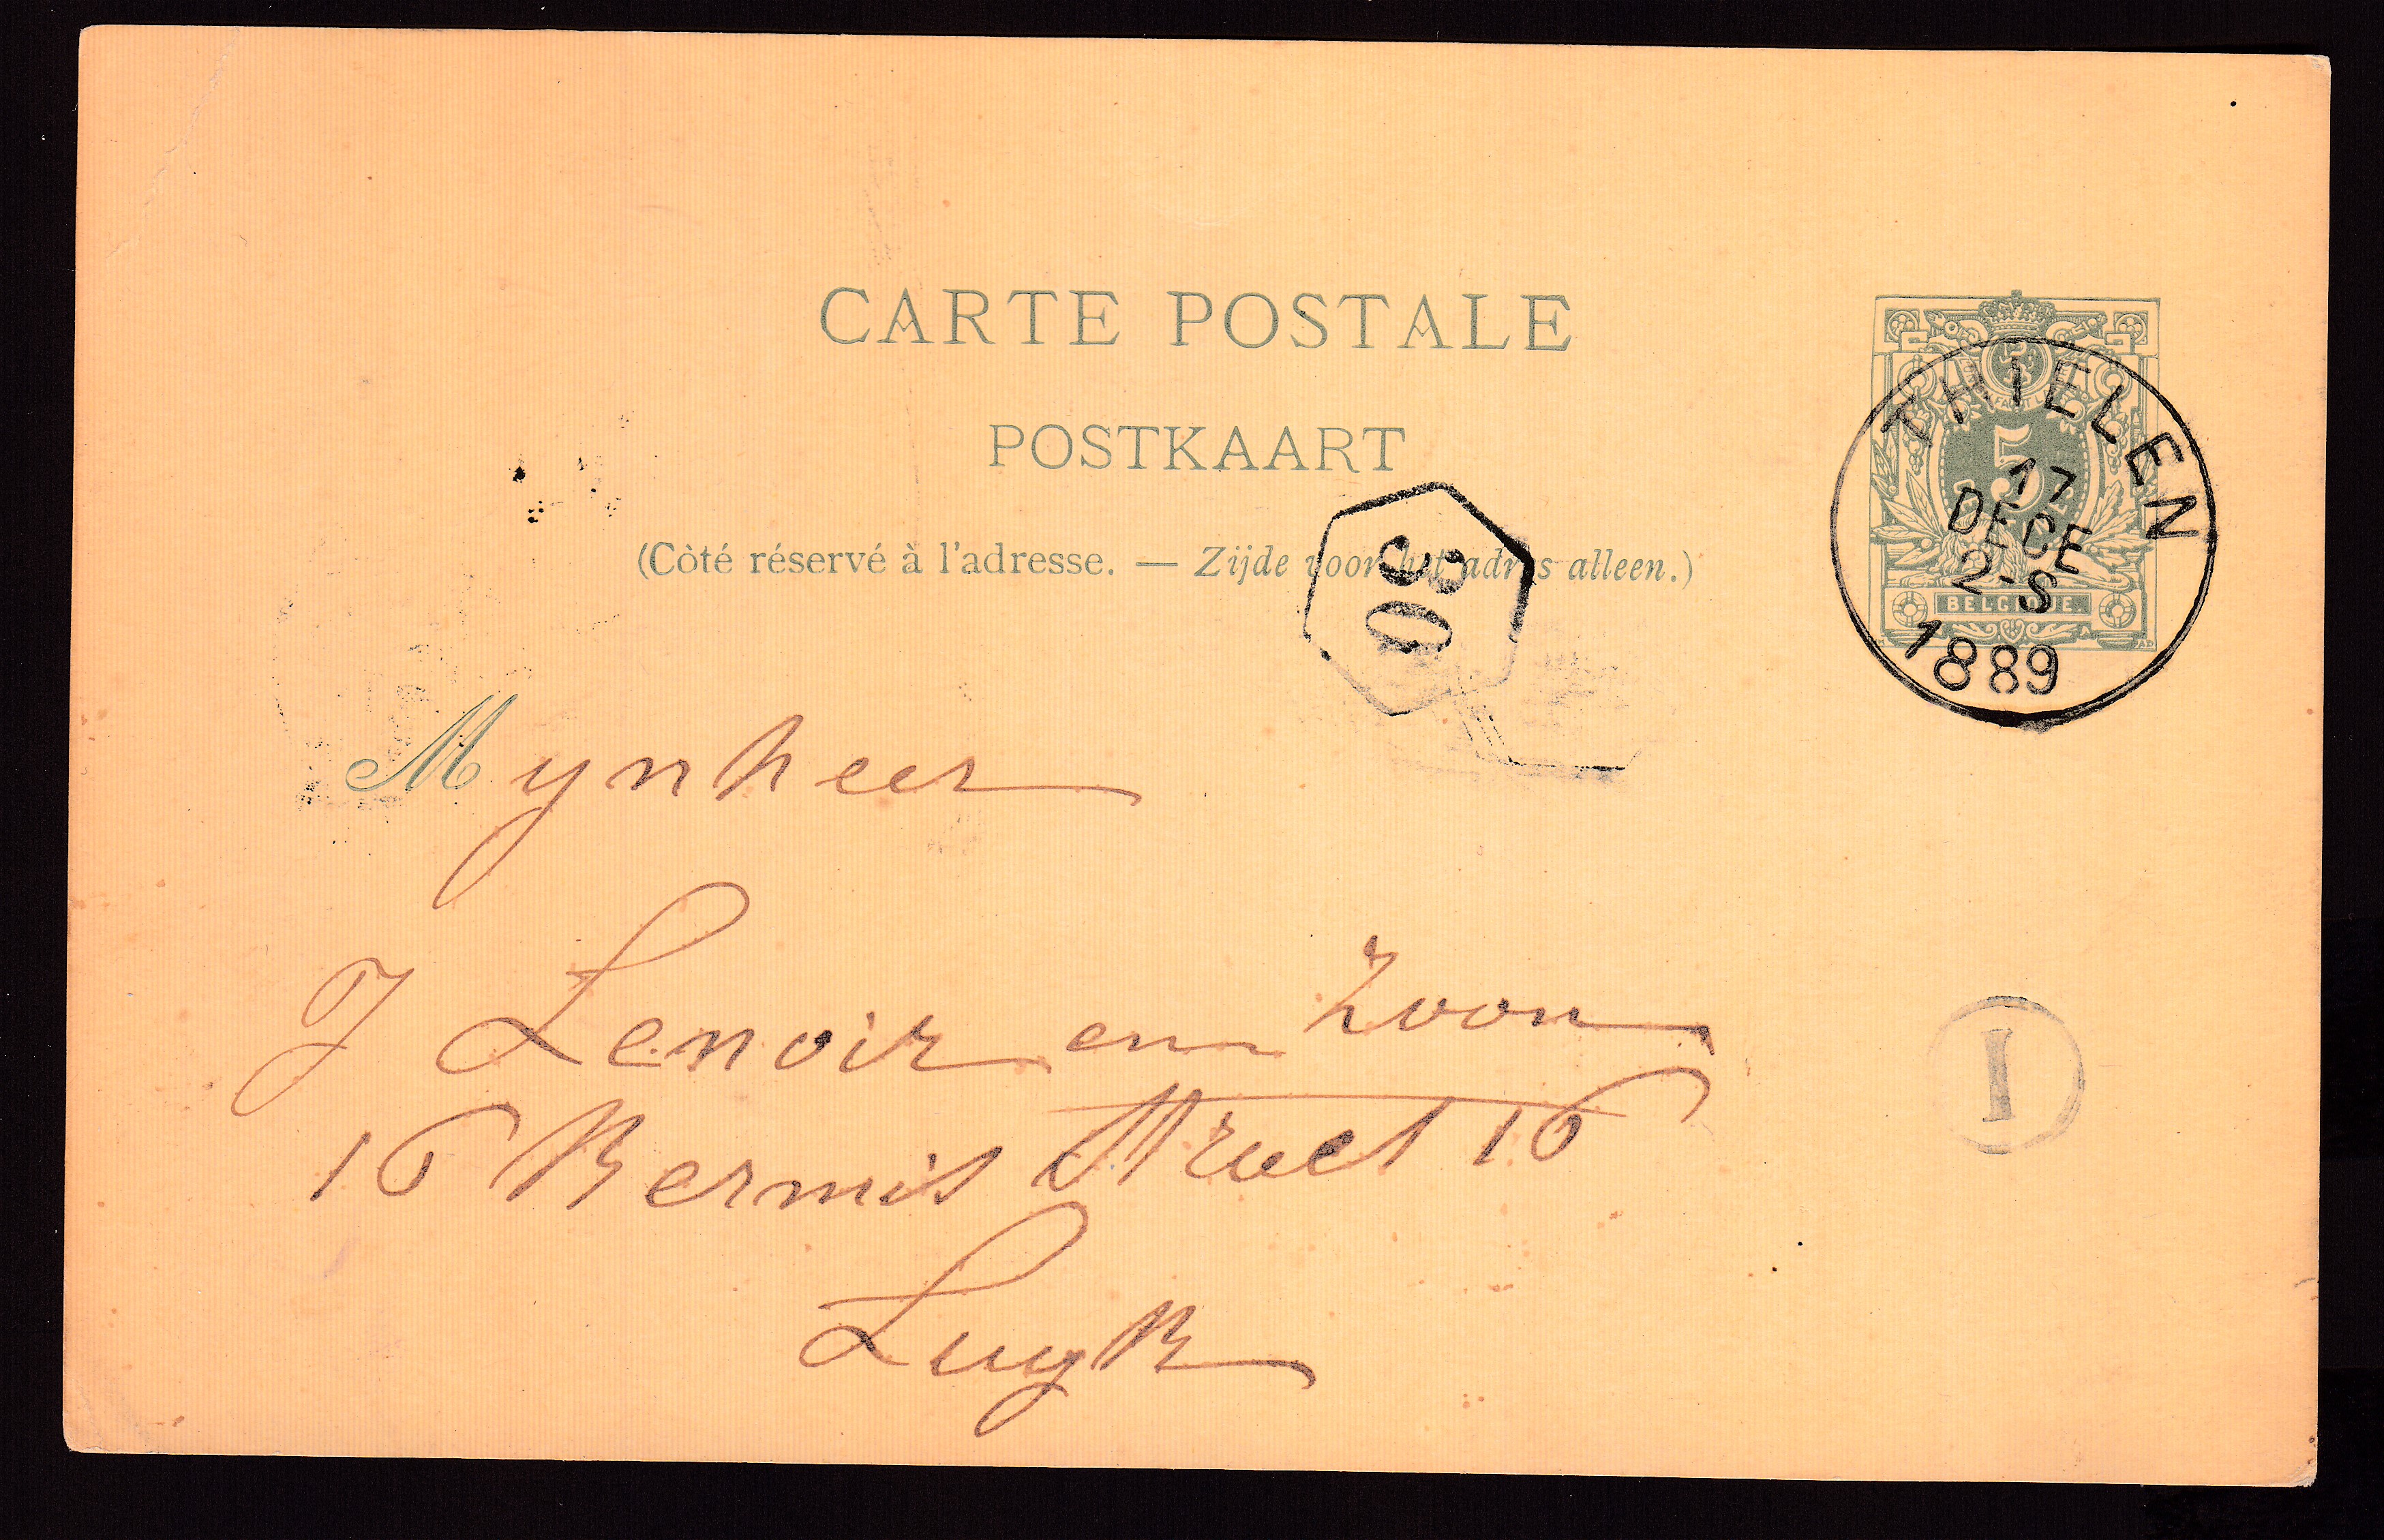 CARTE POSTALE
POSTKAART
(Côté réservé à l'adresse. — Zijde voor het adres alleen.)
5
BELGIQUE.
THIELEN
17
DECE
2-S
1889
30
Mynheer
J Lenoir en Zoon
16 Kermis Struet 16
Luyk
I